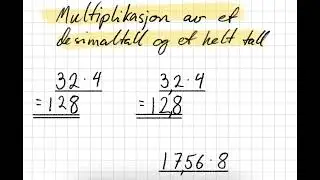 Multiplikasjon av et
desimaltall og et helt tall
32 · 4
= 128
3,2 · 4
= 12,8
17,56 · 8